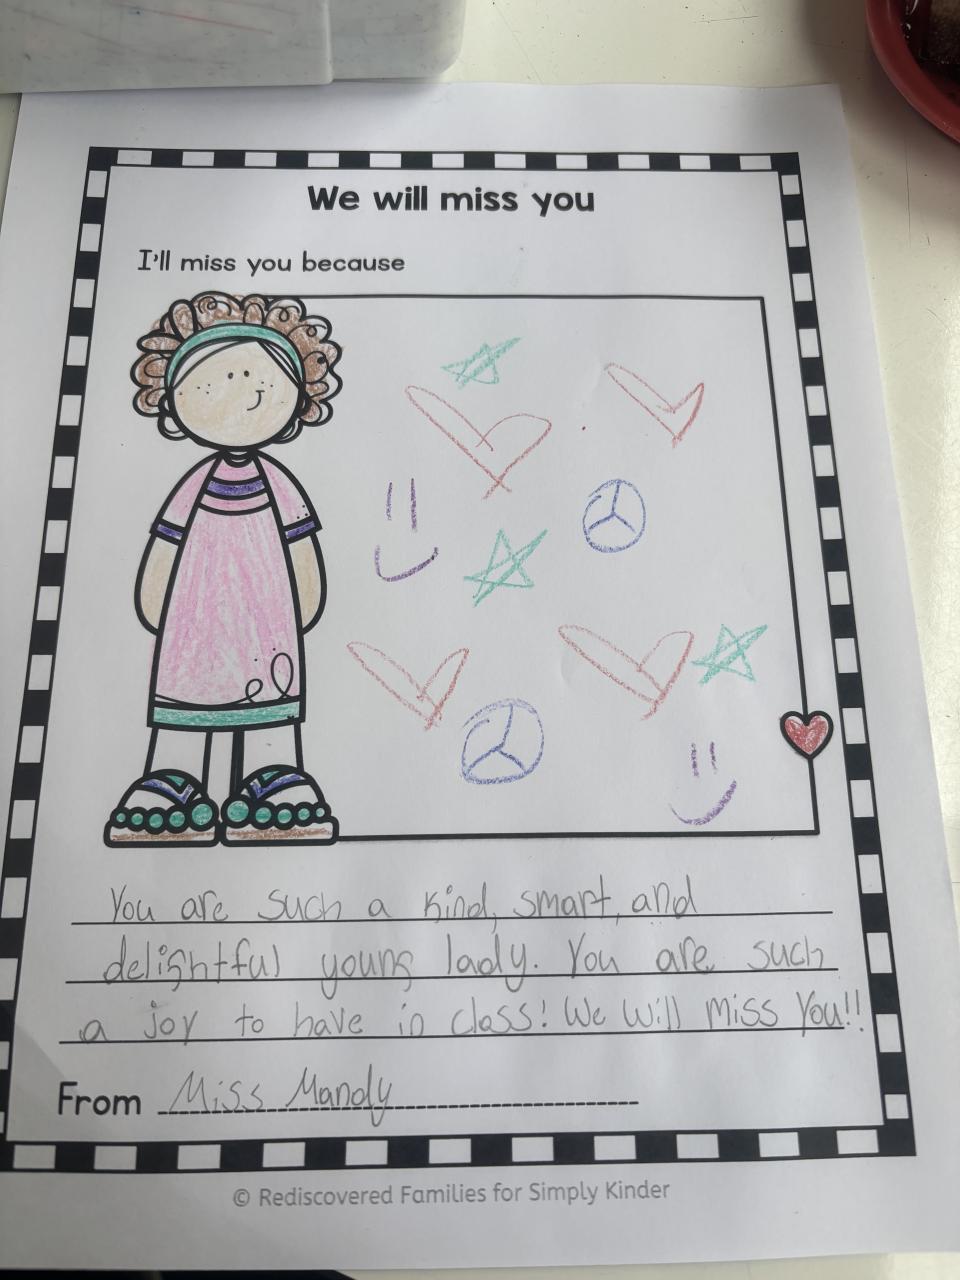 We will miss you
I'll miss you because
You are such a kind, smart, and
delightful young lady. You are such
a joy to have in class! We will miss you!!
From Miss Mandy
© Rediscovered Families for Simply Kinder